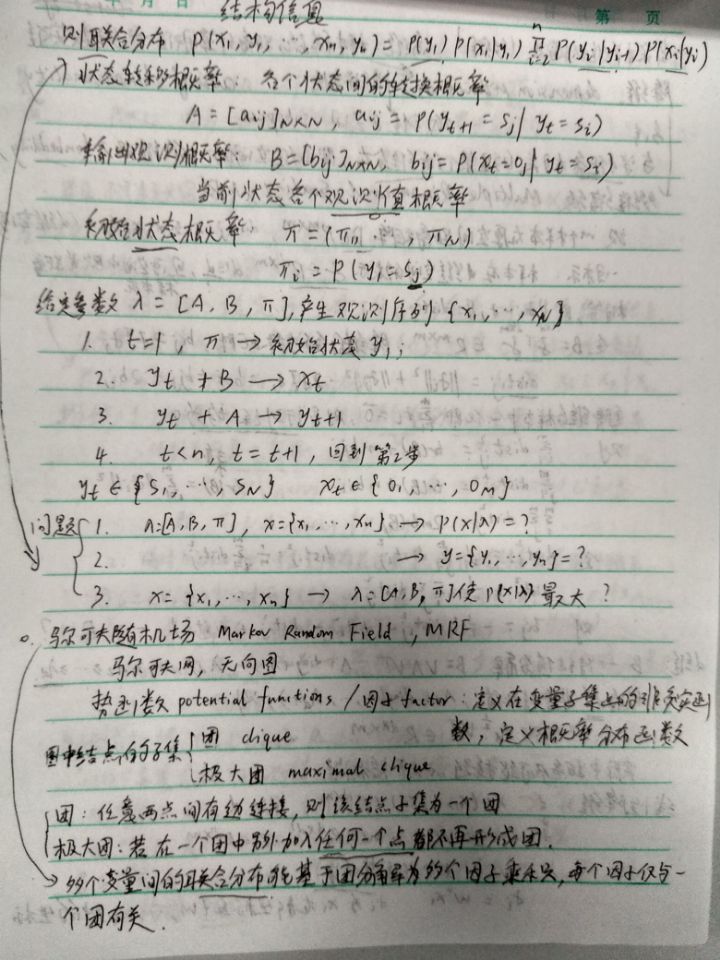 月 日
第 页
结构信息
则联合分布 P(x₁, y₁, ..., xn, yn) = P(y₁) P(x₁|y₁) ∏ⁿᵢ₌₂ P(yᵢ|yᵢ₊₁) P(xᵢ|yᵢ)
状态转移概率: 各个状态间的转换概率
A = [aij]N×N, aij = P(yt+1 = sj | yt = si)
输出观测概率: B = [bij]N×N, bij = P(xt = oj | yt = si)
当前状态各个观测值概率
初始状态概率: π = (π₁, ..., πN)
πi = P(y₁ = sj)
给定参数 λ = [A, B, π], 产生观测序列 {x₁, ..., xN}
1. t=1, π → 初始状态 y₁;
2. yt + B → xt
3. yt + A → yt+1
4. t<n, t = t+1, 回到第2步
yt ∈ {s₁, ..., sN} xt ∈ {o₁, ..., oM}
问题 1. λ=[A, B, π], x={x₁, ..., xn} → P(x|λ) = ?
2. → y={y₁, ..., yn} = ?
3. x = {x₁, ..., xn} → λ=[A, B, π]使P(x|λ)最大?
。马尔可夫随机场 Markov Random Field, MRF
马尔可夫网, 无向图
势函数 potential functions / 因子 factor: 定义在变量子集上的非负实函
数, 定义概率分布函数
图中结点的子集 团 clique
极大团 maximal clique
团: 任意两点间有边连接, 则该结点子集为一个团
极大团: 若在一个团中另外加入任何一个点都不再形成团.
多个变量间的联合分布能基于团分解为多个因子乘积, 每个因子仅与一
个团有关.